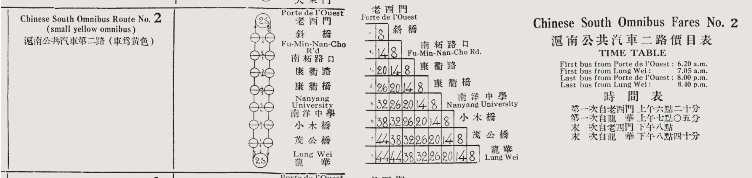 Chinese South Omnibus Route No. 2
(small yellow omnibus)
滬南公共汽車第二路（車爲黃色）
Porte de l'Ouest
老西門
斜橋
Fu-Min-Nan-Cho
R'd
南柘路口
康衢路
康衢橋
Nanyang
University
南洋中學
小木橋
茂公橋
Lung Wei
龍華
老西門
Porte de l'Ouest
8 斜橋
14 8 南柘路口
Fu-Min-Nan-Cho Rd.
20 14 8 康衢路
26 20 14 8 康衢橋
32 26 20 14 8 南洋中學
Nanyang University
38 32 26 20 14 8 小木橋
44 38 32 26 20 14 8 茂公橋
44 44 38 32 26 20 14 8 龍華
Lung Wei
Chinese South Omnibus Fares No. 2
滬南公共汽車二路價目表
TIME TABLE
First bus from Porte de l'Ouest: 6.20 a.m.
First bus from Lung Wei: 7.05 a.m.
Last bus from Porte de l'Ouest: 8.00 p.m.
Last bus from Lung Wei: 8.40 p.m.
時間表
第一次自老西門 上午六點二十分
第一次自龍華 上午七點〇五分
末次自老西門 下午八點
末次自龍華 下午八點四十分
Porte de l'Ouest